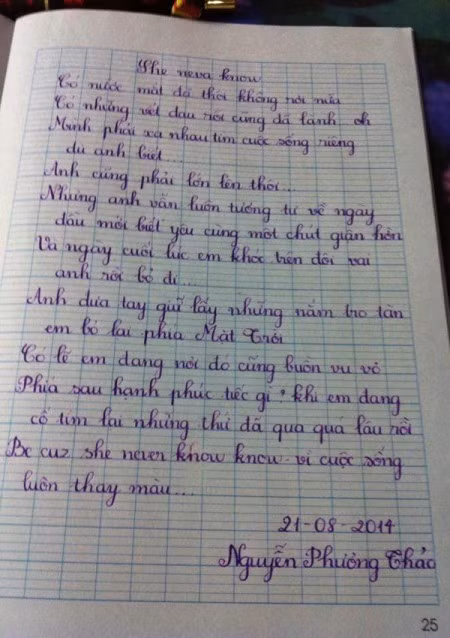 She neva know
Có nước mắt đã thôi không rơi nữa
Có những vết đau rồi cũng đã lành oh
Mình phải xa nhau tìm cuộc sống riêng
dù anh biết...
Anh cũng phải lớn lên thôi...
Nhưng anh vẫn luôn tương tư về ngày
đầu mới biết yêu cùng một chút giận hờn
Và ngày cuối lúc em khóc trên đôi vai
anh rồi bỏ đi...
Anh đưa tay giữ lấy những nắm tro tàn
em bỏ lại phía Mặt Trời
Có lẽ em đang nơi đó cũng buồn vu vơ
Phía sau hạnh phúc tiếc gì? khi em đang
cố tìm lại những thứ đã qua quá lâu rồi
Be cuz she never know know vì cuộc sống
luôn thay màu...
21-08-2014
Nguyễn Phương Thảo
25